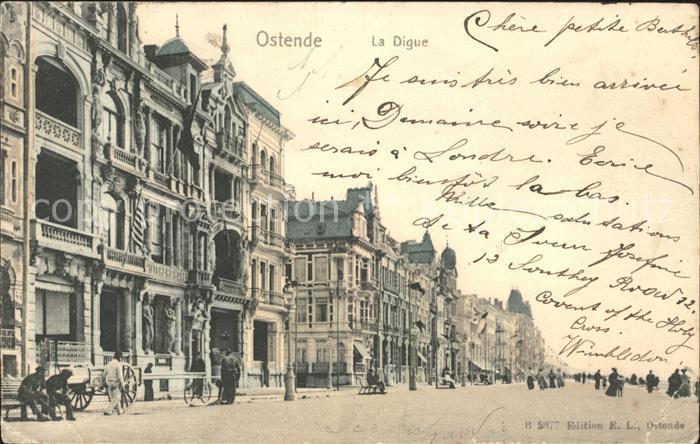 Ostende La Digue
Chère petite Berthe
Je suis très bien arrivée
ici, Demaine soire je
serais à Londre. Ecrie
moi bientôt la bas.
Mille salutations
de ta Sœur Josefine
13 Southey Road
Covent of the Holy
Cross.
Wimbledon
B 5877 Edition E. L., Ostende